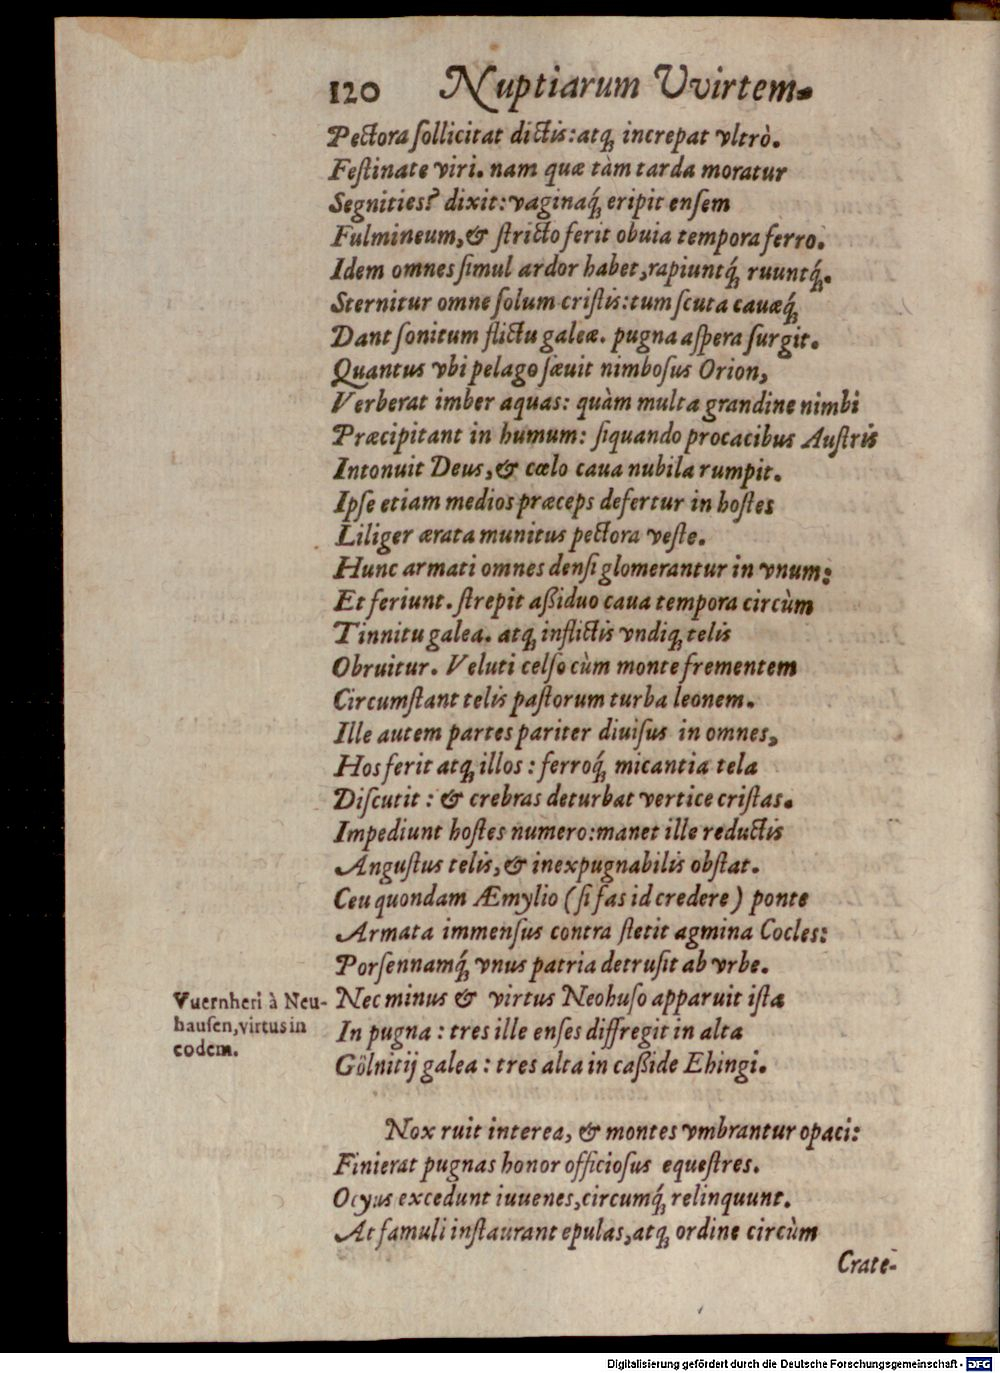 120 Nuptiarum Vvirtem-
Pectora ſollicitat dictis: atq́; increpat vltrò.
Feſtinate viri. nam quæ tàm tarda moratur
Segnities? dixit: vaginaq́; eripit enſem
Fulmineum, & ſtricto ferit obuia tempora ferro.
Idem omnes ſimul ardor habet, rapiuntq́; ruuntq́;.
Sternitur omne ſolum criſtis: tum ſcuta cauæq́;
Dant ſonitum flictu galeæ. pugna aſpera ſurgit.
Quantus vbi pelago ſæuit nimboſus Orion,
Verberat imber aquas: quàm multa grandine nimbi
Præcipitant in humum: ſiquando procacibus Auſtris
Intonuit Deus, & cælo caua nubila rumpit.
Ipſe etiam medios præceps defertur in hoſtes
Liliger ærata munitus pectora veſte.
Hunc armati omnes denſi glomerantur in vnum:
Et feriunt. ſtrepit aßiduo caua tempora circùm
Tinnitu galea. atq; inflictis vndiq; telis
Obruitur. Veluti celſo cùm monte frementem
Circumſtant telis paſtorum turba leonem.
Ille autem partes pariter diuiſus in omnes,
Hos ferit atq; illos: ferroq́; micantia tela
Diſcutit: & crebras deturbat vertice criſtas.
Impediunt hoſtes numero: manet ille reductis
Anguſtus telis, & inexpugnabilis obſtat.
Ceu quondam Æmylio (ſi fas id credere) ponte
Armata immenſus contra ſtetit agmina Cocles:
Porſennamq́; vnus patria detruſit ab vrbe.
Nec minus & virtus Neohuſo apparuit iſta
In pugna: tres ille enſes diffregit in alta
Gölnitij galea: tres alta in caßide Ehingi.
Vuernheri à Neu-
hauſen, virtus in
eodem.
Nox ruit interea, & montes vmbrantur opaci:
Finierat pugnas honor officioſus equeſtres.
Ocyus excedunt iuuenes, circumq́; relinquunt.
At famuli inſtaurant epulas, atq; ordine circùm
Crate-
Digitalisierung gefördert durch die Deutsche Forschungsgemeinschaft - DFG